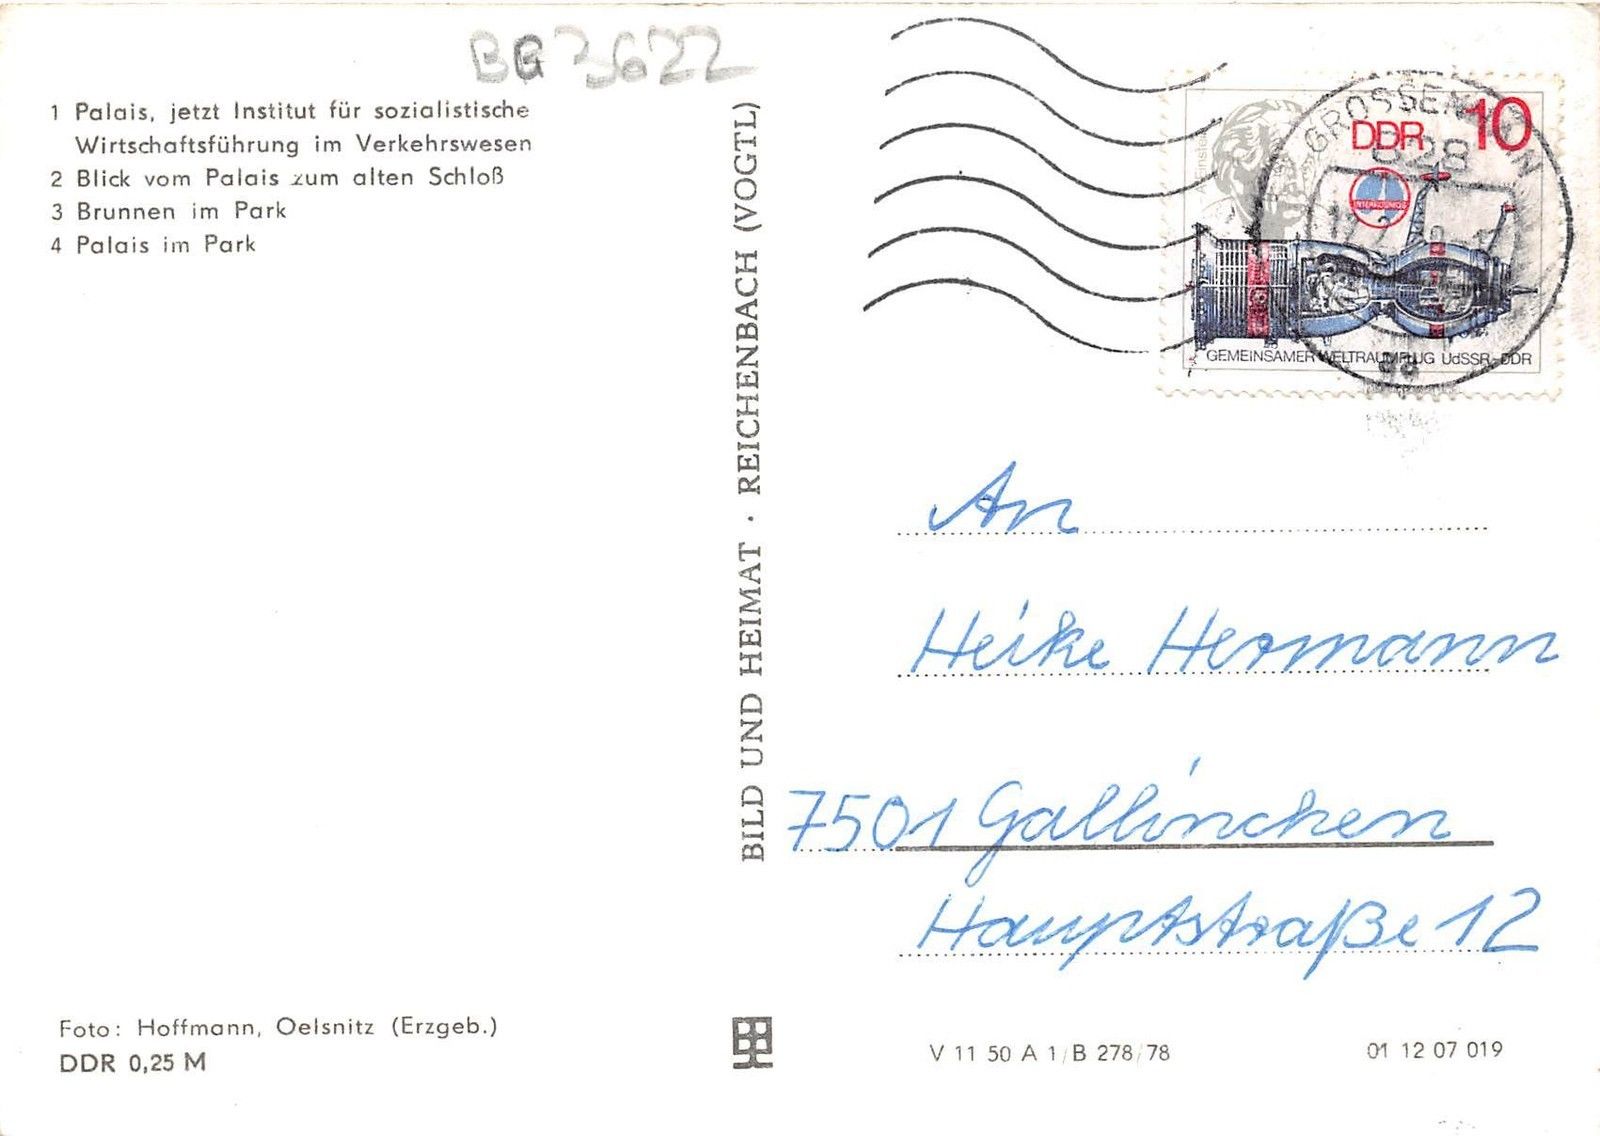 BG 3622
1 Palais, jetzt Institut für sozialistische
Wirtschaftsführung im Verkehrswesen
2 Blick vom Palais zum alten Schloß
3 Brunnen im Park
4 Palais im Park
Foto: Hoffmann, Oelsnitz (Erzgeb.)
DDR 0,25 M
BILD UND HEIMAT · REICHENBACH (VOGTL)
DDR 10
INTERKOSMOS
GEMEINSAMER WELTRAUMFLUG UdSSR-DDR
828
An
Heike Hermann
7501 Gallinchen
Hauptstraße 12
V 11 50 A 1/B 278/78
01 12 07 019